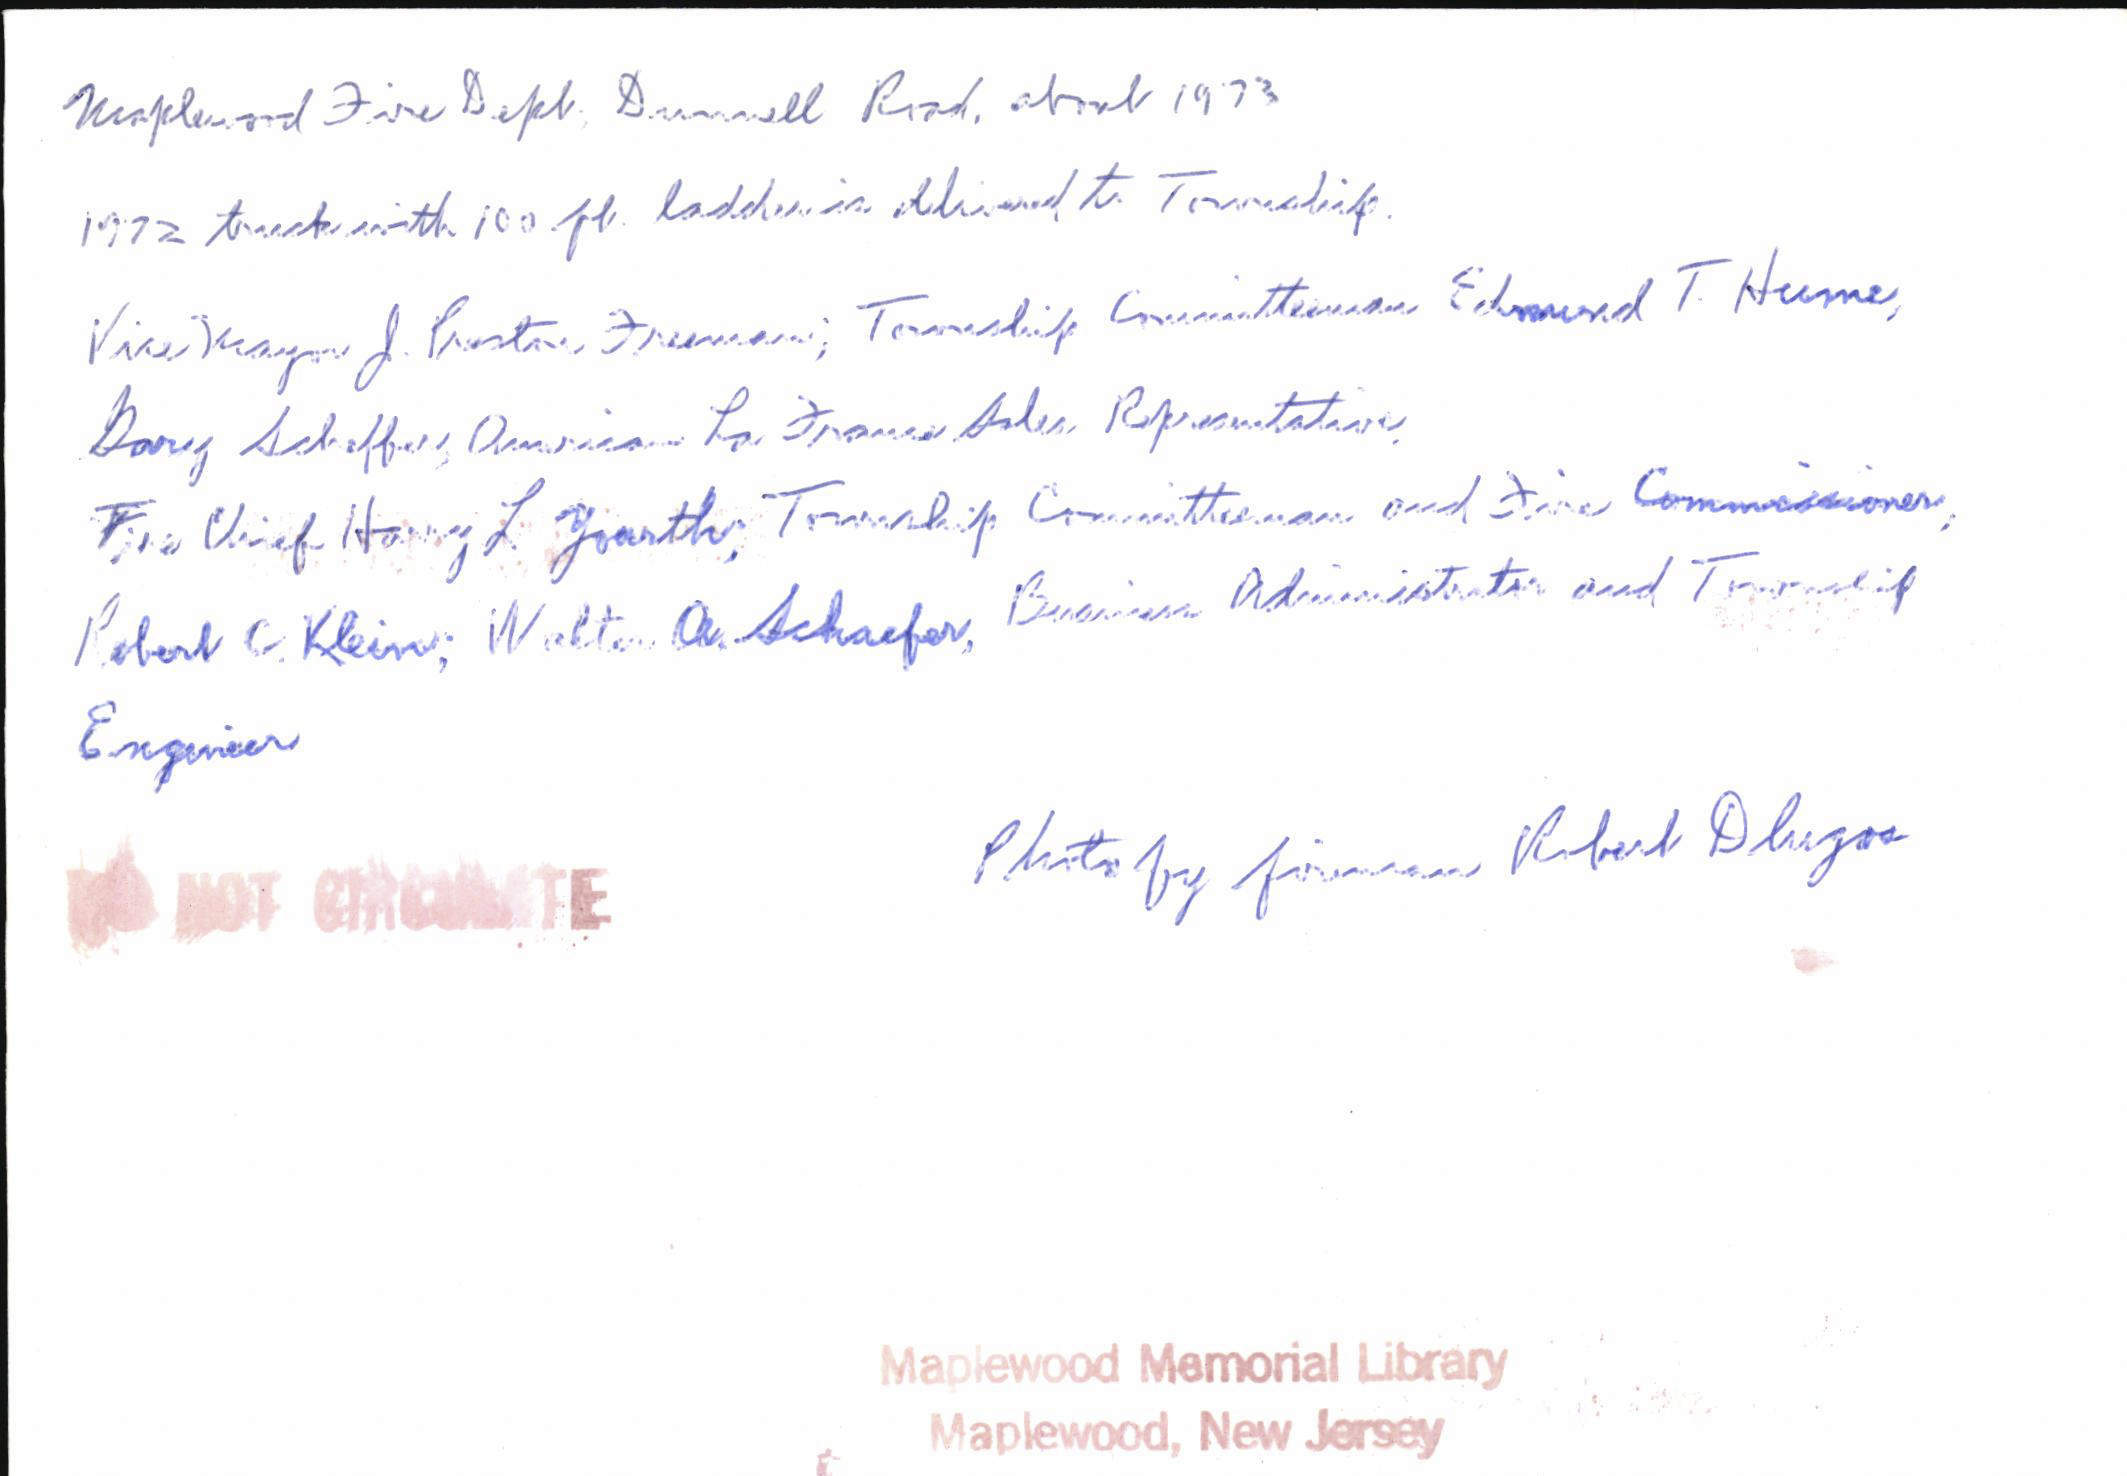 Maplewood Fire Dept, Dunnell Road, about 1973
1972 truck with 100 ft. ladder is delivered to Township.
Vice Mayor J. Preston Freeman; Township Committeeman Edmund T. Hume,
Gary Scheffer, American La France Sales Representative,
Fire Chief Harry L. Yourth; Township Committeeman and Fire Commissioner,
Robert C. Klein; Walter A. Schaefer, Business Administrator and Township
Engineer
Photo by fireman Robert Dlugos
DO NOT CIRCULATE
Maplewood Memorial Library
Maplewood, New Jersey